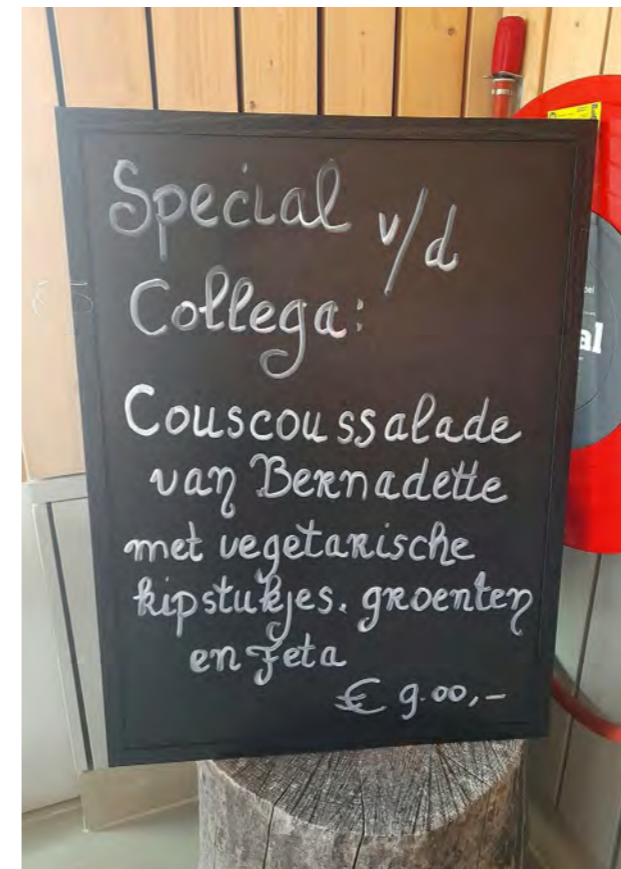 Special v/d
Collega:
Couscoussalade
van Bernadette
met vegetarische
kipstukjes. groenten
en feta
€ 9.00,-